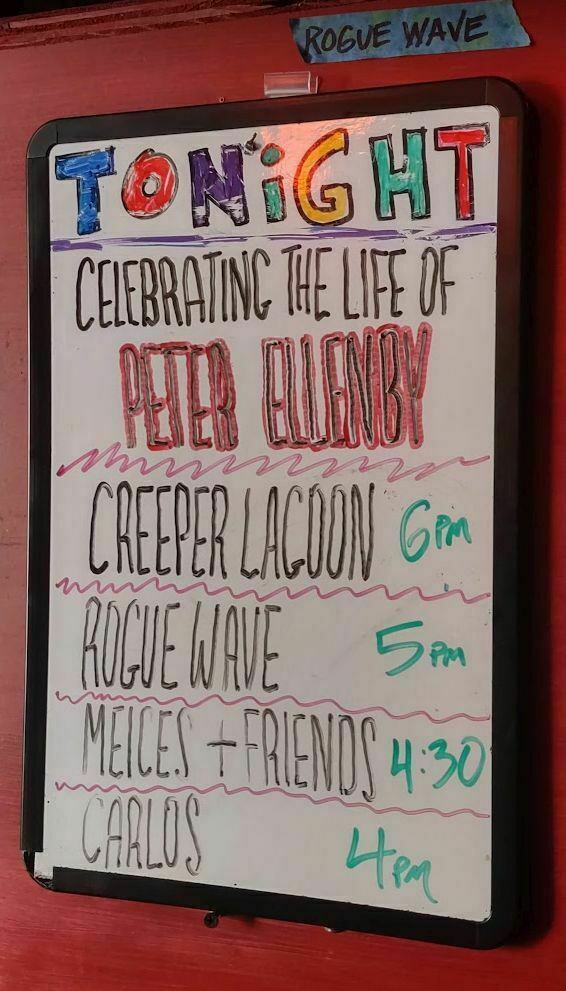 ROGUE WAVE
TONiGHT
CELEBRATING THE LIFE OF
PETER ELLENBY
CREEPER LAGOON 6PM
ROGUE WAVE 5PM
MEICES + FRIENDS 4:30
CARLOS 4PM